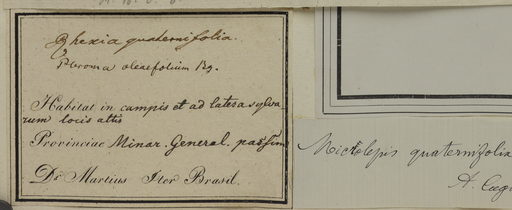 Rhexia quaternifolia.
Pleroma oleaefolium
Habitat in campis et ad latera sylva-
rum locis altis
Provinciae Minar. General. passim
Dr. Martius Iter Brasil.
quaternifolia
A. Cogn